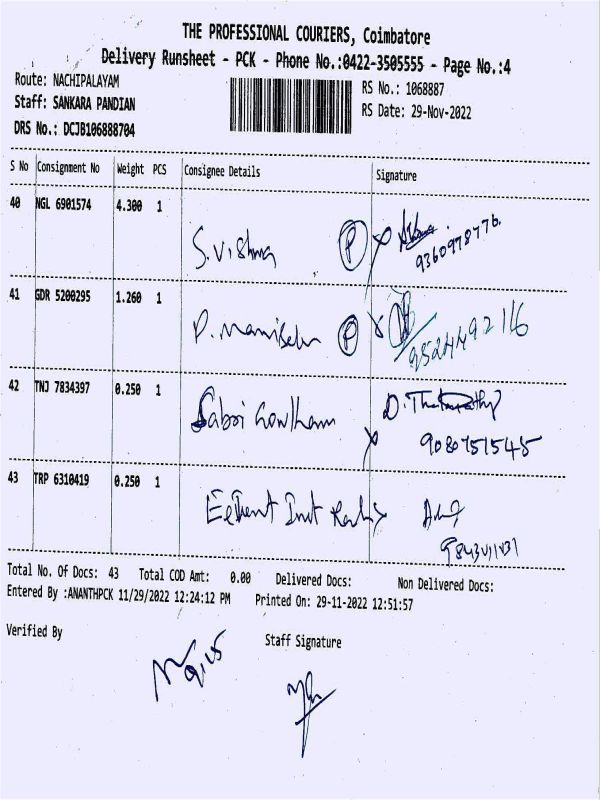 THE PROFESSIONAL COURIERS, Coimbatore
Delivery Runsheet - PCK - Phone No.:0422-3505555 - Page No.:4
Route: NACHIPALAYAM
RS No.: 1068887
Staff: SANKARA PANDIAN
RS Date: 29-Nov-2022
DRS No.: DCJB106888704
S No Consignment No Weight PCS Consignee Details Signature
40 NGL 6901574 4.300 1
S. Vishnu P
9360978776.
41 GDR 5200295 1.260 1
P. P
9524492116
42 TNJ 7834397 0.250 1
Sabari Gowtham D.
9080751545
43 TRP 6310419 0.250 1
Total No. Of Docs: 43 Total COD Amt: 0.00 Delivered Docs: Non Delivered Docs:
Entered By :ANANTHPCK 11/29/2022 12:24:12 PM Printed On: 29-11-2022 12:51:57
Verified By Staff Signature